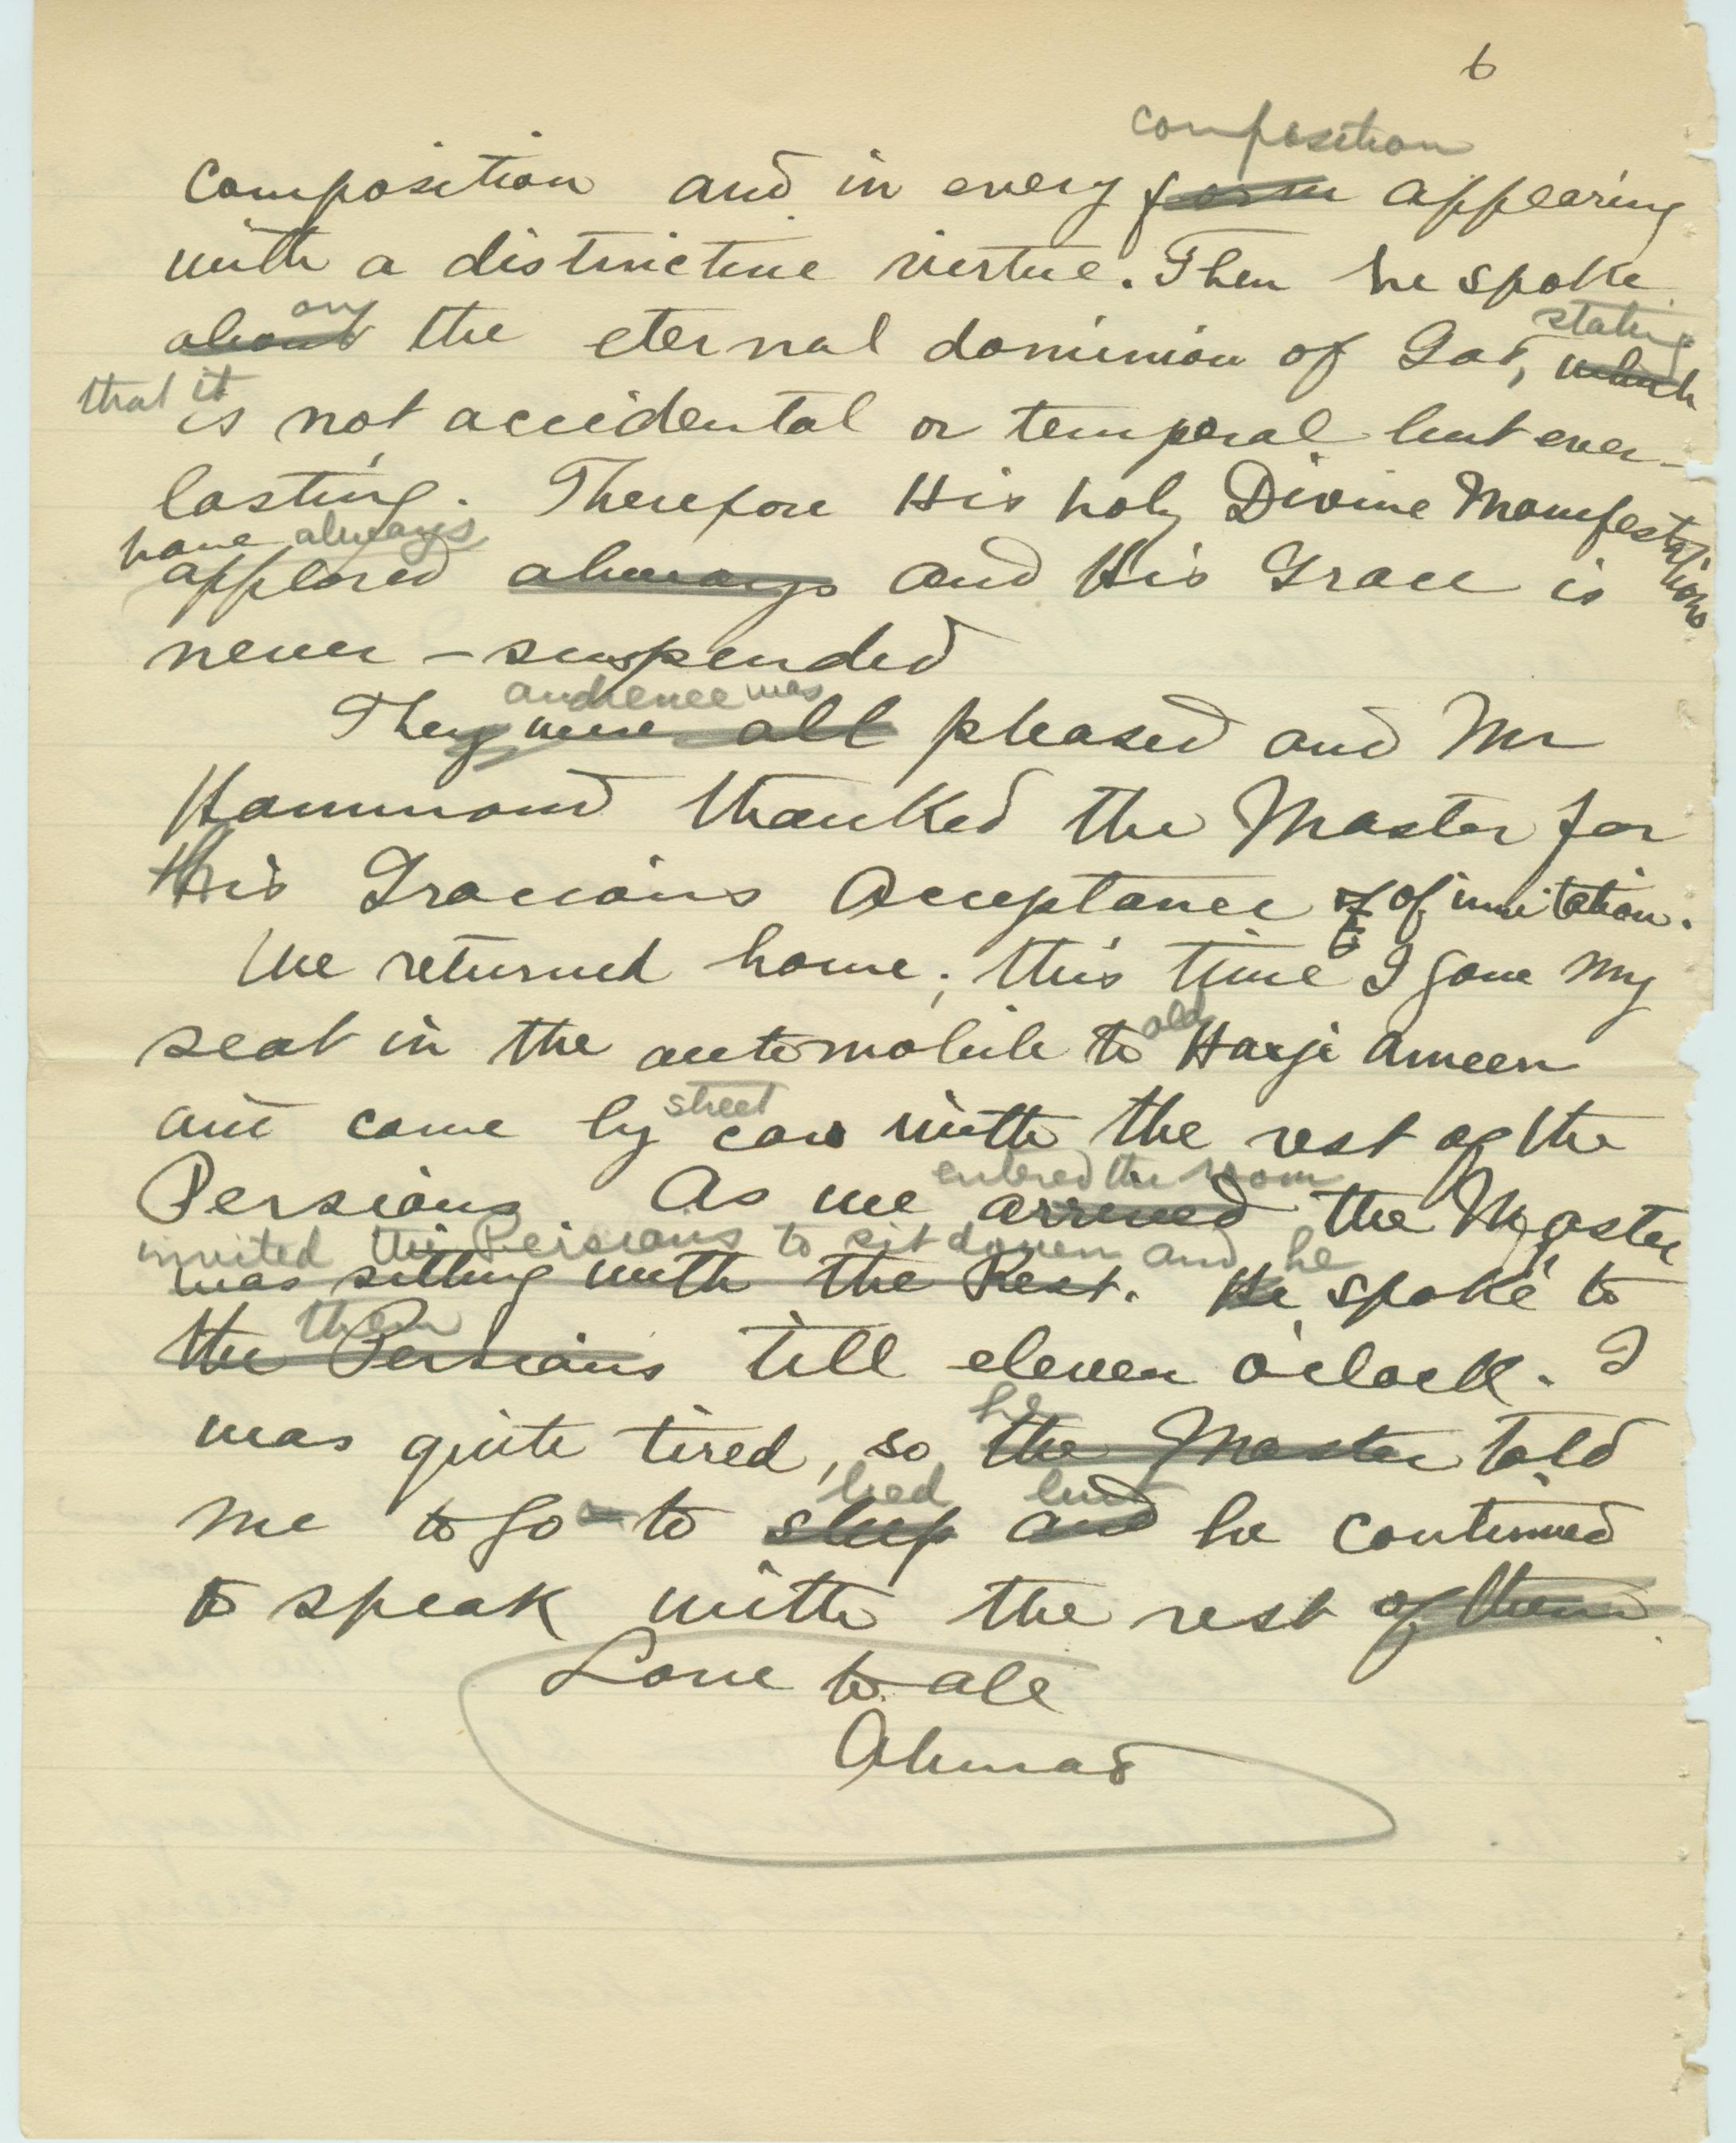 6
composition
composition and in every form appearing
with a distinctive virtue. Then he spoke
on stating
about the eternal dominion of God, which
that it
is not accidental or temporal but ever-
lasting. Therefore His holy Divine Manifestations
have always
appeared always and His Grace is
never-suspended
audience was
They were all pleased and Mr
Hammond thanked the Master for
His Gracious Acceptance of of invitation.
We returned home; this time I gave my
old
seat in the automobile to Haeji Ameen
street
and came by car with the rest of the
entered the room
Persians. As we arrived the Master
invited the Persians to sit down and he
was sitting with the Rest. He spoke to
them
the Persians till eleven o'clock. I
he
was quite tired, so the Master told
bed but
me to go to sleep and he continued
to speak with the rest of them.
Love to all
Ahmad